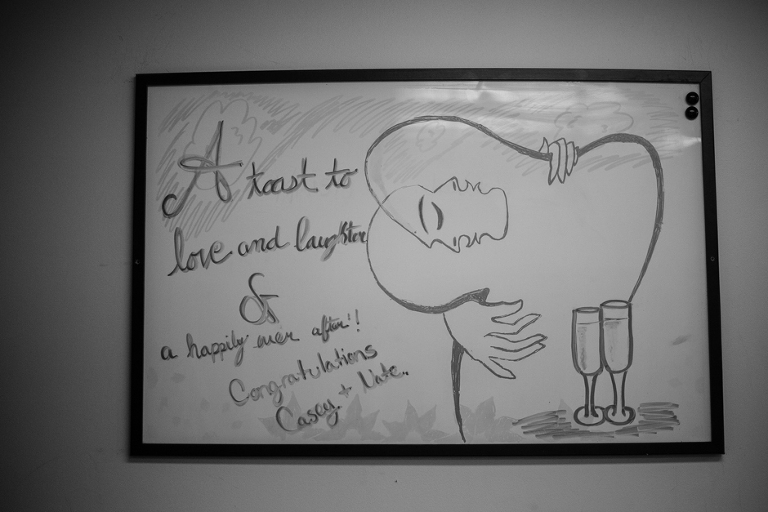 A toast to
love and laughter
&
a happily ever after!!
Congratulations
Casey + Nate..